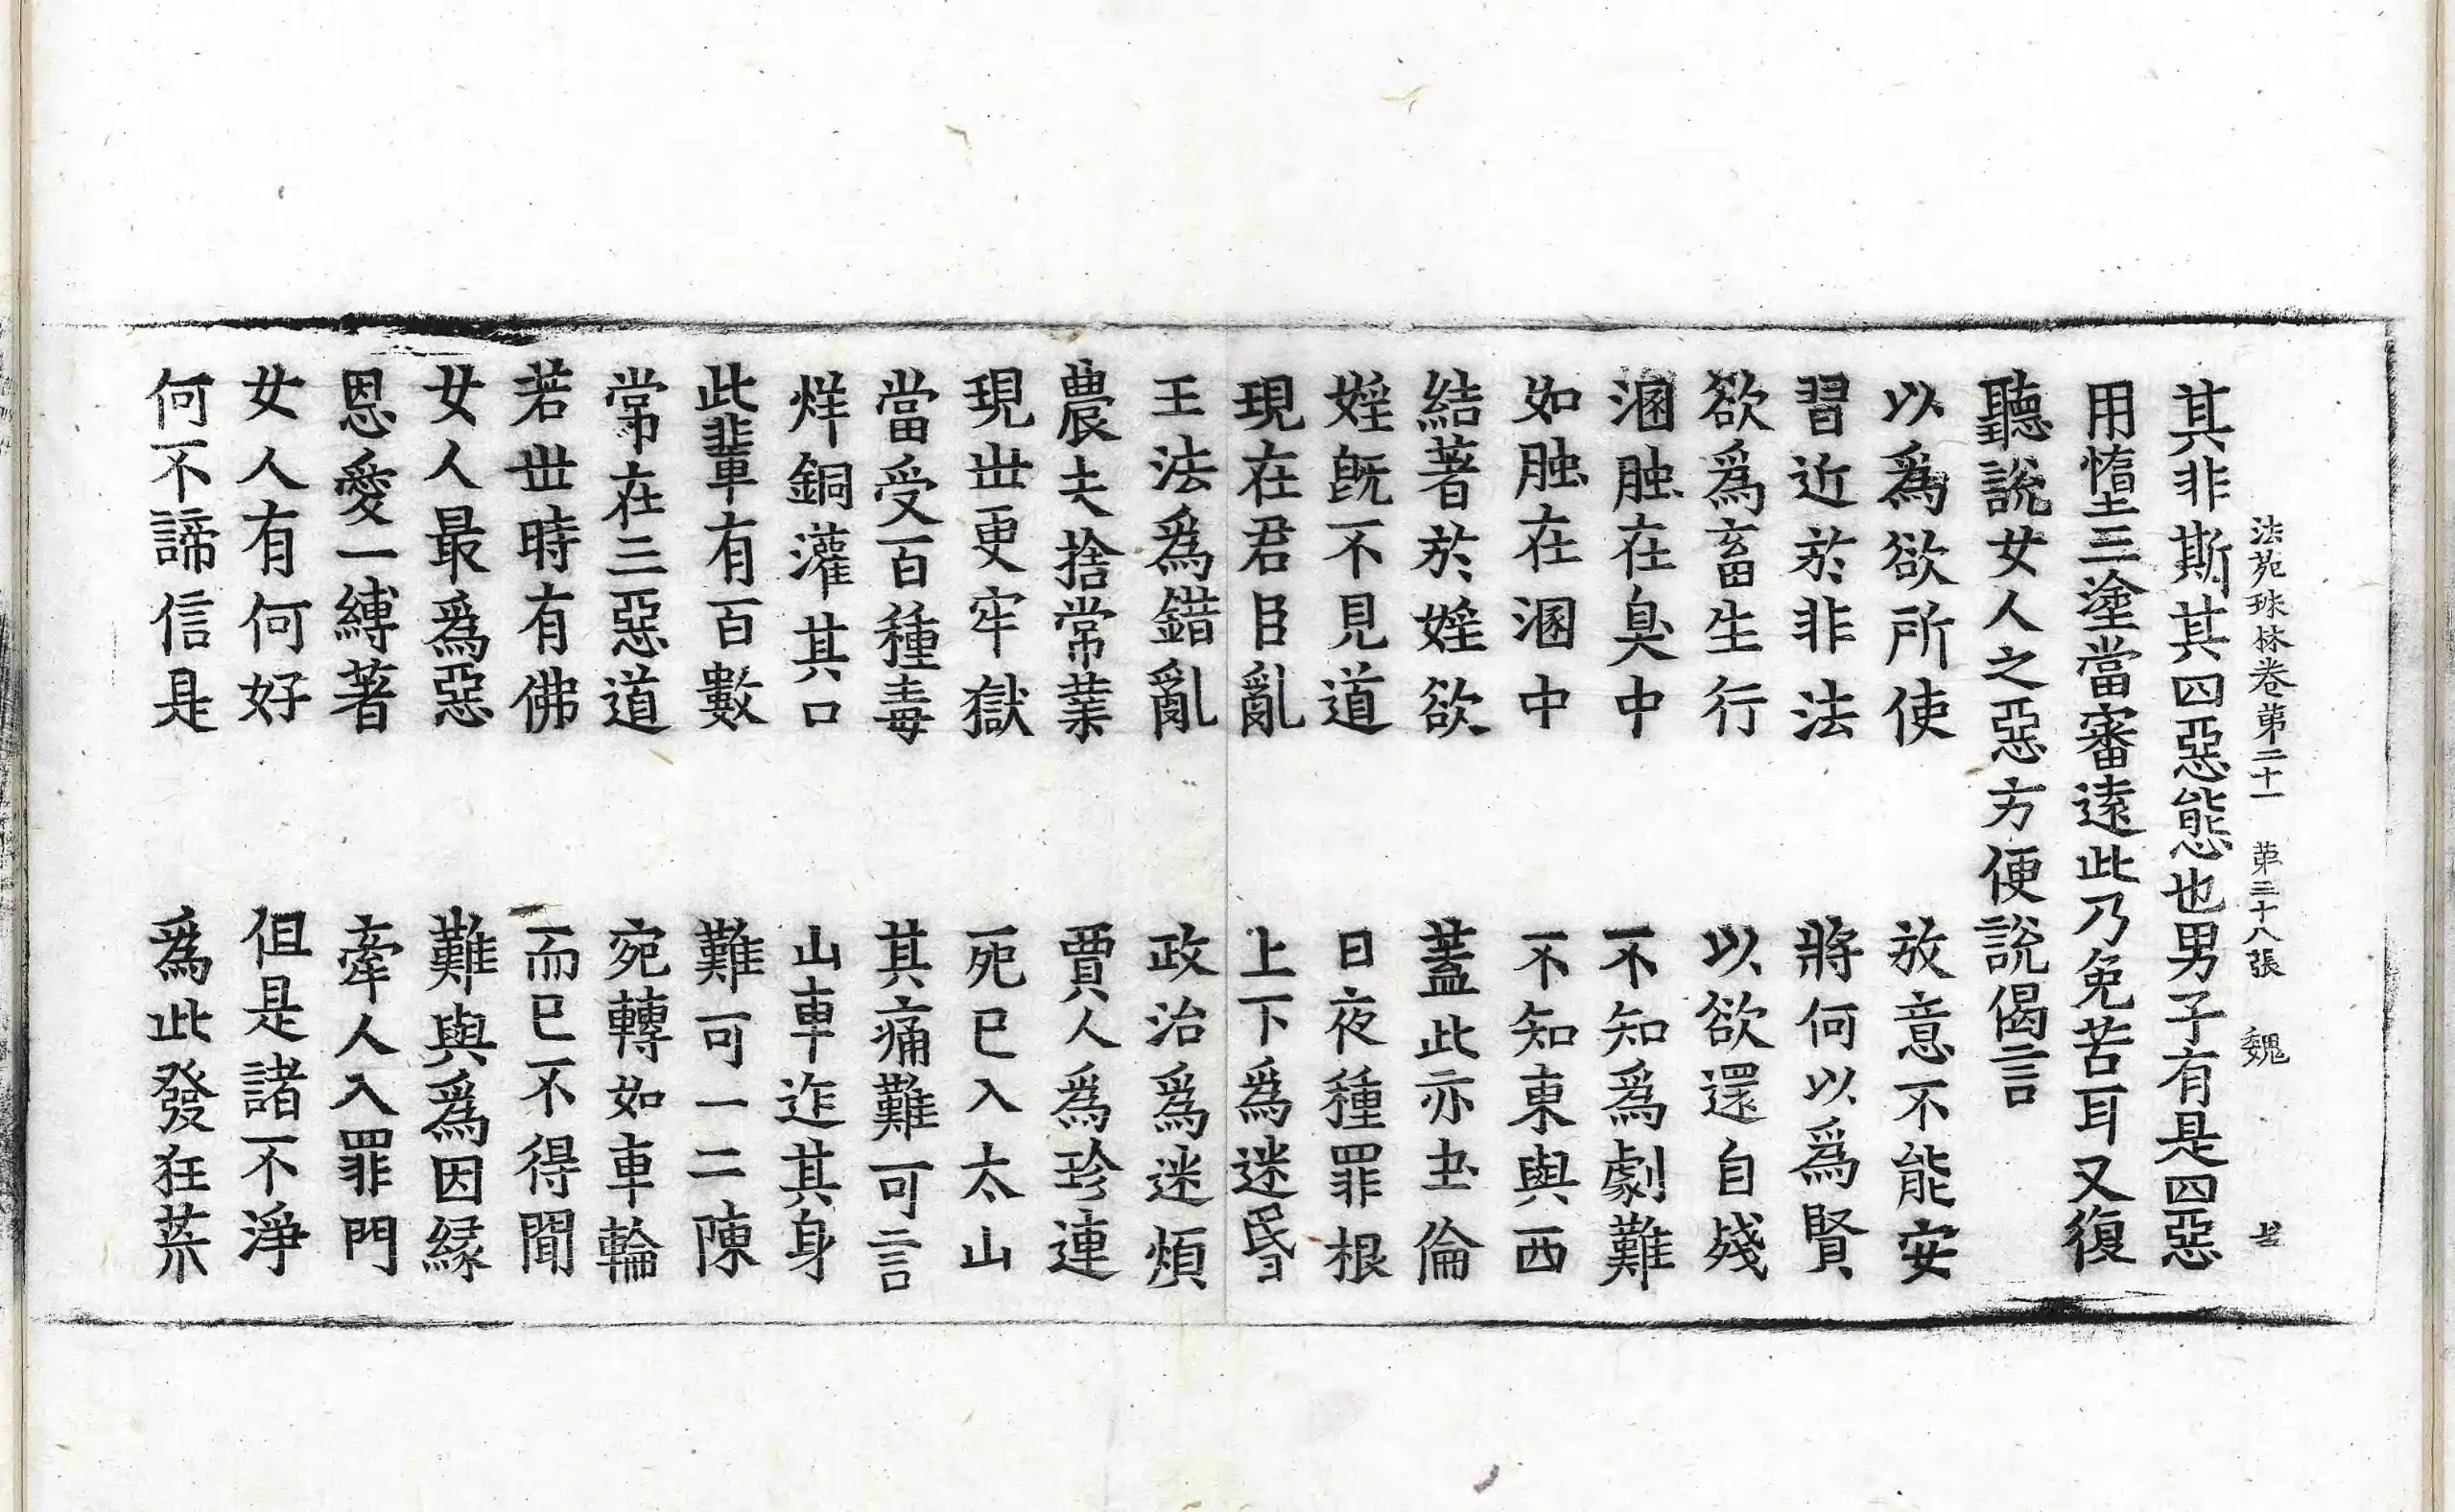 法苑珠林卷第二十一 第三十八張 魏
其非斯其四惡態也男子有是四惡
用墮三塗當審遠此乃免苦耳又復
聽說女人之惡方便說偈言
以為欲所使 放意不能安
習近於非法 將何以為賢
欲為畜生行 以欲還自殘
溷䖝在臭中 不知為劇難
如䖝在溷中 不知東與西
結著於婬欲 蓋此亦䖝倫
婬旣不見道 日夜種罪根
現在君臣亂 上下為迷昬
王法為錯亂 政治為迷煩
農夫捨常業 賈人為珍連
現世更牢獄 死已入太山
當受百種毒 其痛難可言
烊銅灌其口 山車迮其身
此輩有百數 難可一二陳
常在三惡道 宛轉如車輪
若世時有佛 而已不得聞
女人最為惡 難與為因緣
恩愛一縛著 牽人入罪門
女人有何好 但是諸不淨
何不諦信是 為此發狂荒